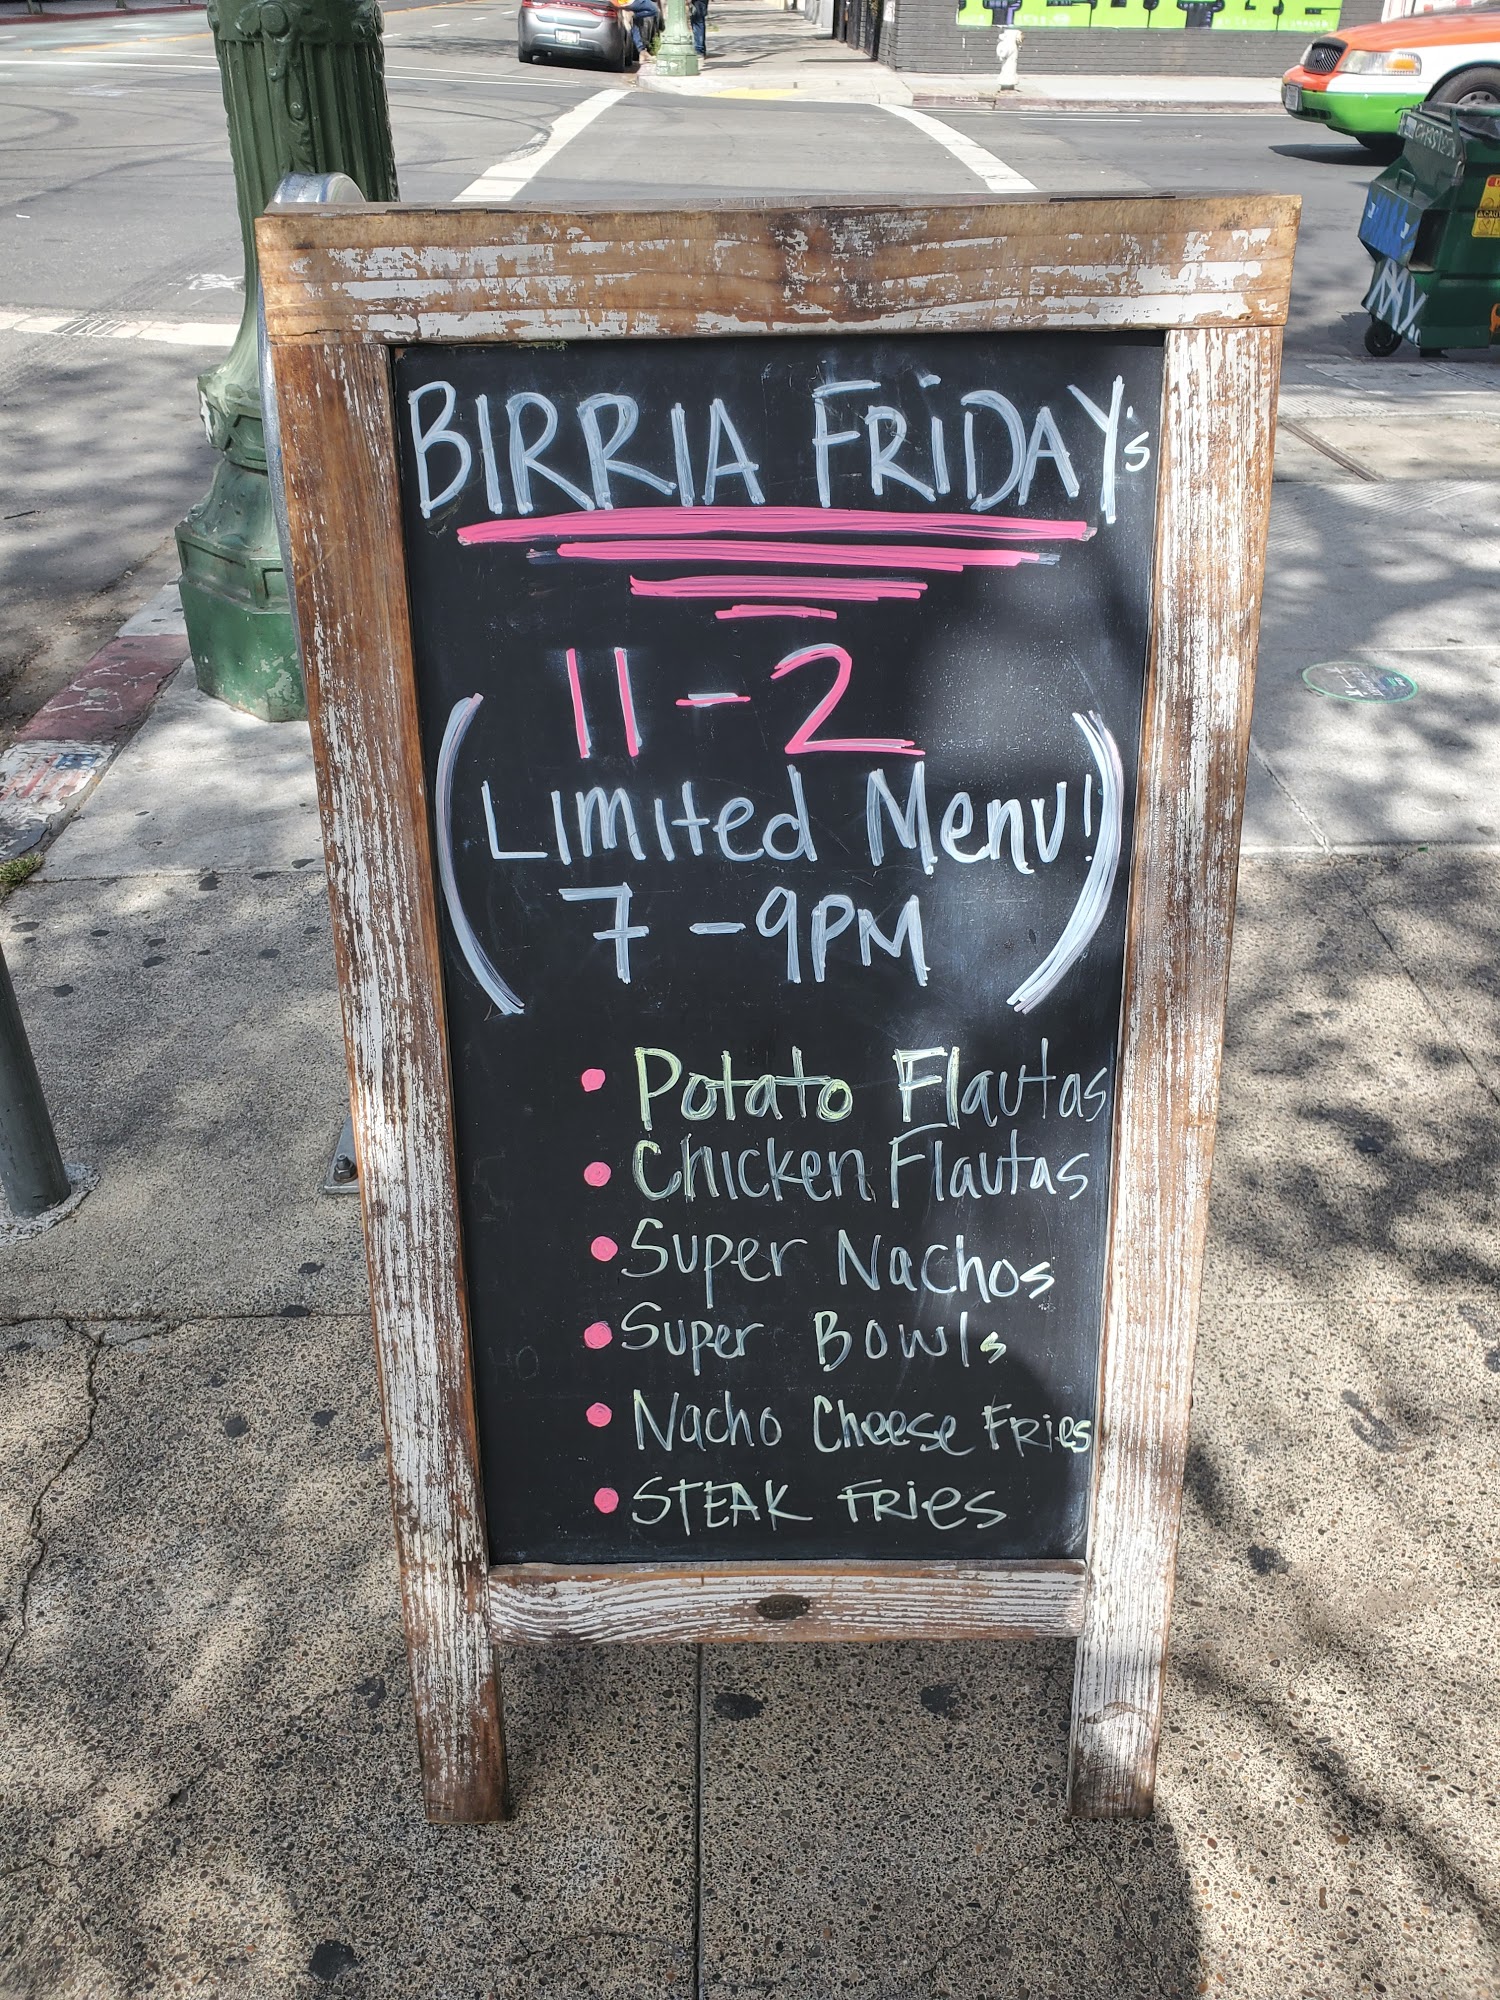 BIRRIA FRIDAY's
11 - 2
(Limited Menu!
7 - 9PM)
• Potato Flautas
• Chicken Flautas
• Super Nachos
• Super Bowls
• Nacho Cheese Fries
• STEAK FRies